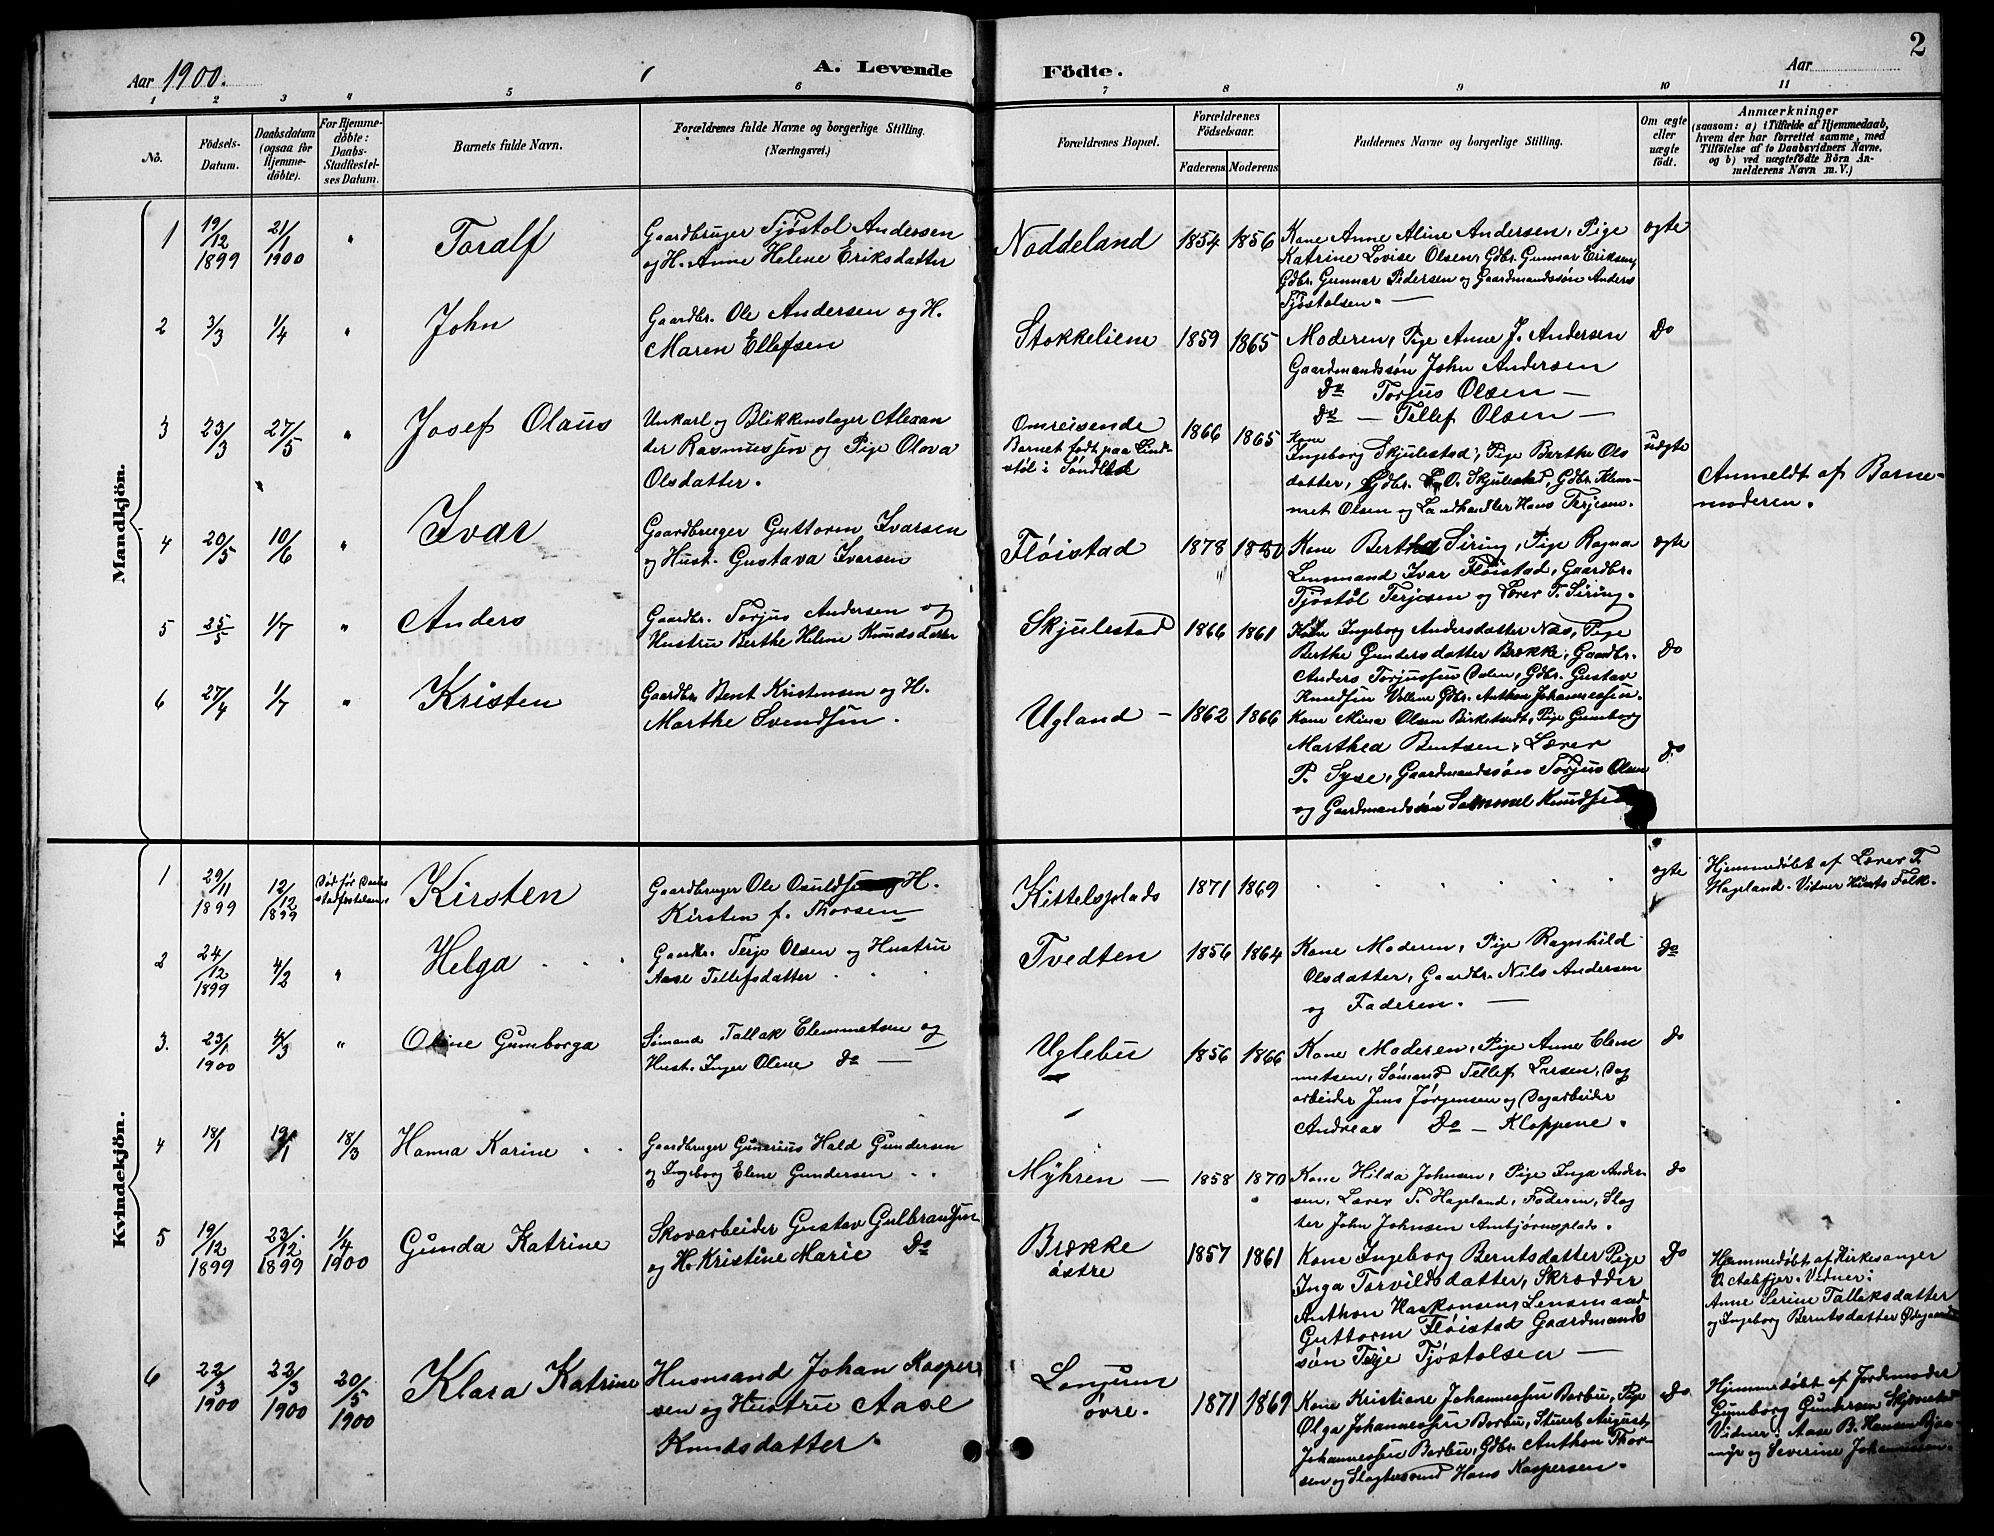 2
Aar 1900.
A. Levende Födte.
Aar
1 2 3 4 5 6 7 8 9 10 11
No.
Födsels-Datum.
Daabsdatum (ogsaa för Hjemmedöbte).
For Hjemmedöbte: Daabs-Stadfæstelses Datum.
Barnets fulde Navn.
Forældrenes fulde Navne og borgerlige Stilling. (Næringsvei.)
Forældrenes Bopæl.
Forældrenes Födselsaar.
Faderens Moderens
Faddernes Navne og borgerlige Stilling.
Om ægte eller uægte födt.
Anmærkninger
(saasom: a) i Tilfælde af Hjemmedaab,
hvem der har forrettet samme, med
Tilföielse af to Daabsvidners Navne,
og b) ved uægtefödte Börn An-
melderens Navn m. V.)
Mandkjön.
1 19/12 1899 21/1 1900 " Toralf
Gaardbruger Tjöstol Andersen
og H. Anne Helene Eriksdatter
Noddeland 1854 1856
Kone Anne Aline Andersen, Pige
Katrine Lovise Olsen, Gdbr. Gunnar Eriksen,
Gdbr. Gunnar Pedersen og Gaardmandssøn Anders
Tjöstolsen. —
ægte
2 3/3 1/4 " John
Gaardbr. Ole Andersen og H.
Maren Ellefsen
Stokkeliene 1859 1865
Moderen, Pige Anne J. Andersen
Gaardmandssøn John Andersen
Do Torjus Olsen —
Do — Tellef Olsen —
Do
3 23/3 27/5 " Josef Olaus
Unkarl og Blikkenslager Alexan
der Rasmussen og Pige Olava
Olsdatter.
Omreisende
Barnet født paa Lind-
støl i Søndeled
1866 1865
Kone
Ingeborg Skjulestad, Pige Berthe Ols
datter, Gdbr. O. Skjulestad, Gdbr. Klem-
met Olsen og Landhandler Hans Terjesen.
uægte
Anmeldt af Barne-
moderen.
4 20/5 10/6 " Ivar
Gaardbruger Guttorm Ivarsen
og Hust. Gustava Ivarsen
Fløistad 1878
Kone Bertha Siring, Pige Ragna
Lensmand Ivar Fløistad, Gaardbr.
Tjøstöl Terjesen og Lærer T. Siring.
ægte
5 25/5 1/7 " Anders
Gaardbr. Torjus Andersen og
Hustru Berthe Helene Knudsdatter
Skjulestad 1866 1861
Kone Ingeborg Andersdatter Næs, Pige
Berthe Gundersdatter Brække, Gaardbr.
Anders Torjussen Dalen, Gdbr. Gustav
Knudsen Vollene Gdbr. Anthon Johannessen.
Do
6 27/4 1/7 " Kristen
Gaardbr Bent Kristensen og H.
Marthe Svendsen.
Ugland — 1862 1866
Kone Mina Olsen Birketvedt, Pige Gunborg
Marthea Bentsen, Lærer
P. Syse, Gaardmandssøn Torjus Olsen
og Gaardmandssøn Sammel Knudsen
Do
Kvindekjön.
1 29/11 1899 12/12 1899 Död før Daabs stadfæstelsen
Kirsten
Gaardbruger Ole Osuldsen og H.
Kirsten f. Thorsen
Kittelsplads 1871 1869
ægte
Hjemmedöbt af Lærer T.
Hageland. Vidner Husets Folk.
2 24/12 1899 4/2 " Helga
Gaardbr. Terje Olsen og Hustru
Aase Tellefsdatter
Tvedten 1856 1864
Kone Moderen, Pige Ragnhild
Olsdatter, Gaardbr. Nils Andersen
og Faderen. —
Do
3. 23/1 1900 4/3 " Oline Gunborga
Sømand Tallak Clemmetsen og
Hust. Inger Olene Do —
Uglebu 1856 1866
Kone Moderen, Pige Anne Clem
metsen, Sømand Tellef Larsen, Dag
arbeider Jens Jörgensen og Dagarbeider
Andreas Do — Kloppene.
Do
4 18/1 19/1 18/3 Hanna Karine
Gaardbruger Gunerius Hald Gundersen
og Ingeborg Elene Gundersen
Myhren — 1858 1870
Kone Hilda Johnsen, Pige Inga Ander-
sen, Lærer T. Hageland, Faderen, Slag
ter John Johnsen Ambjørnsplads.
Do
5 19/12 1899 23/12 1899 1/4 1900 Gunda Katrine
Skovarbeider Gustav Gulbrandsen
og H. Kristine Marie Do
Brække
østre
1857 1861
Kone Ingeborg Berntsdatter Pige
Inga Torvildsdatter, Skrædder
Anthon Haakonsen, Lensmand
Guttorm Fløistad Gaardmands
søn Terje Tjøstolsen —
Do
Hjemmedøbt af Kirkesanger
Aabfjer. Vidner:
Anne Serine Tallaksdatter
og Ingeborg Berntsdatter
6 22/3 1900 22/3 1900 20/5 1900 Klara Katrine
Husmand Johan Kasper
sen og Hustru Aase
Knudsdatter.
Longum
øvre.
1871 1869
Kone Kristiane Johannessen Borbu, Pige
Olga Johannessen Borbu, Stuert August
Johannessen Borbu, Gdbr. Anthon Thor-
sen og Slagtersvend Hans Kaspersen.
Do
Hjemmedøbt af Jordemoder
Gunborg Gundersen
Vidner: Aase B. Hansen
og Severine Johannessen.